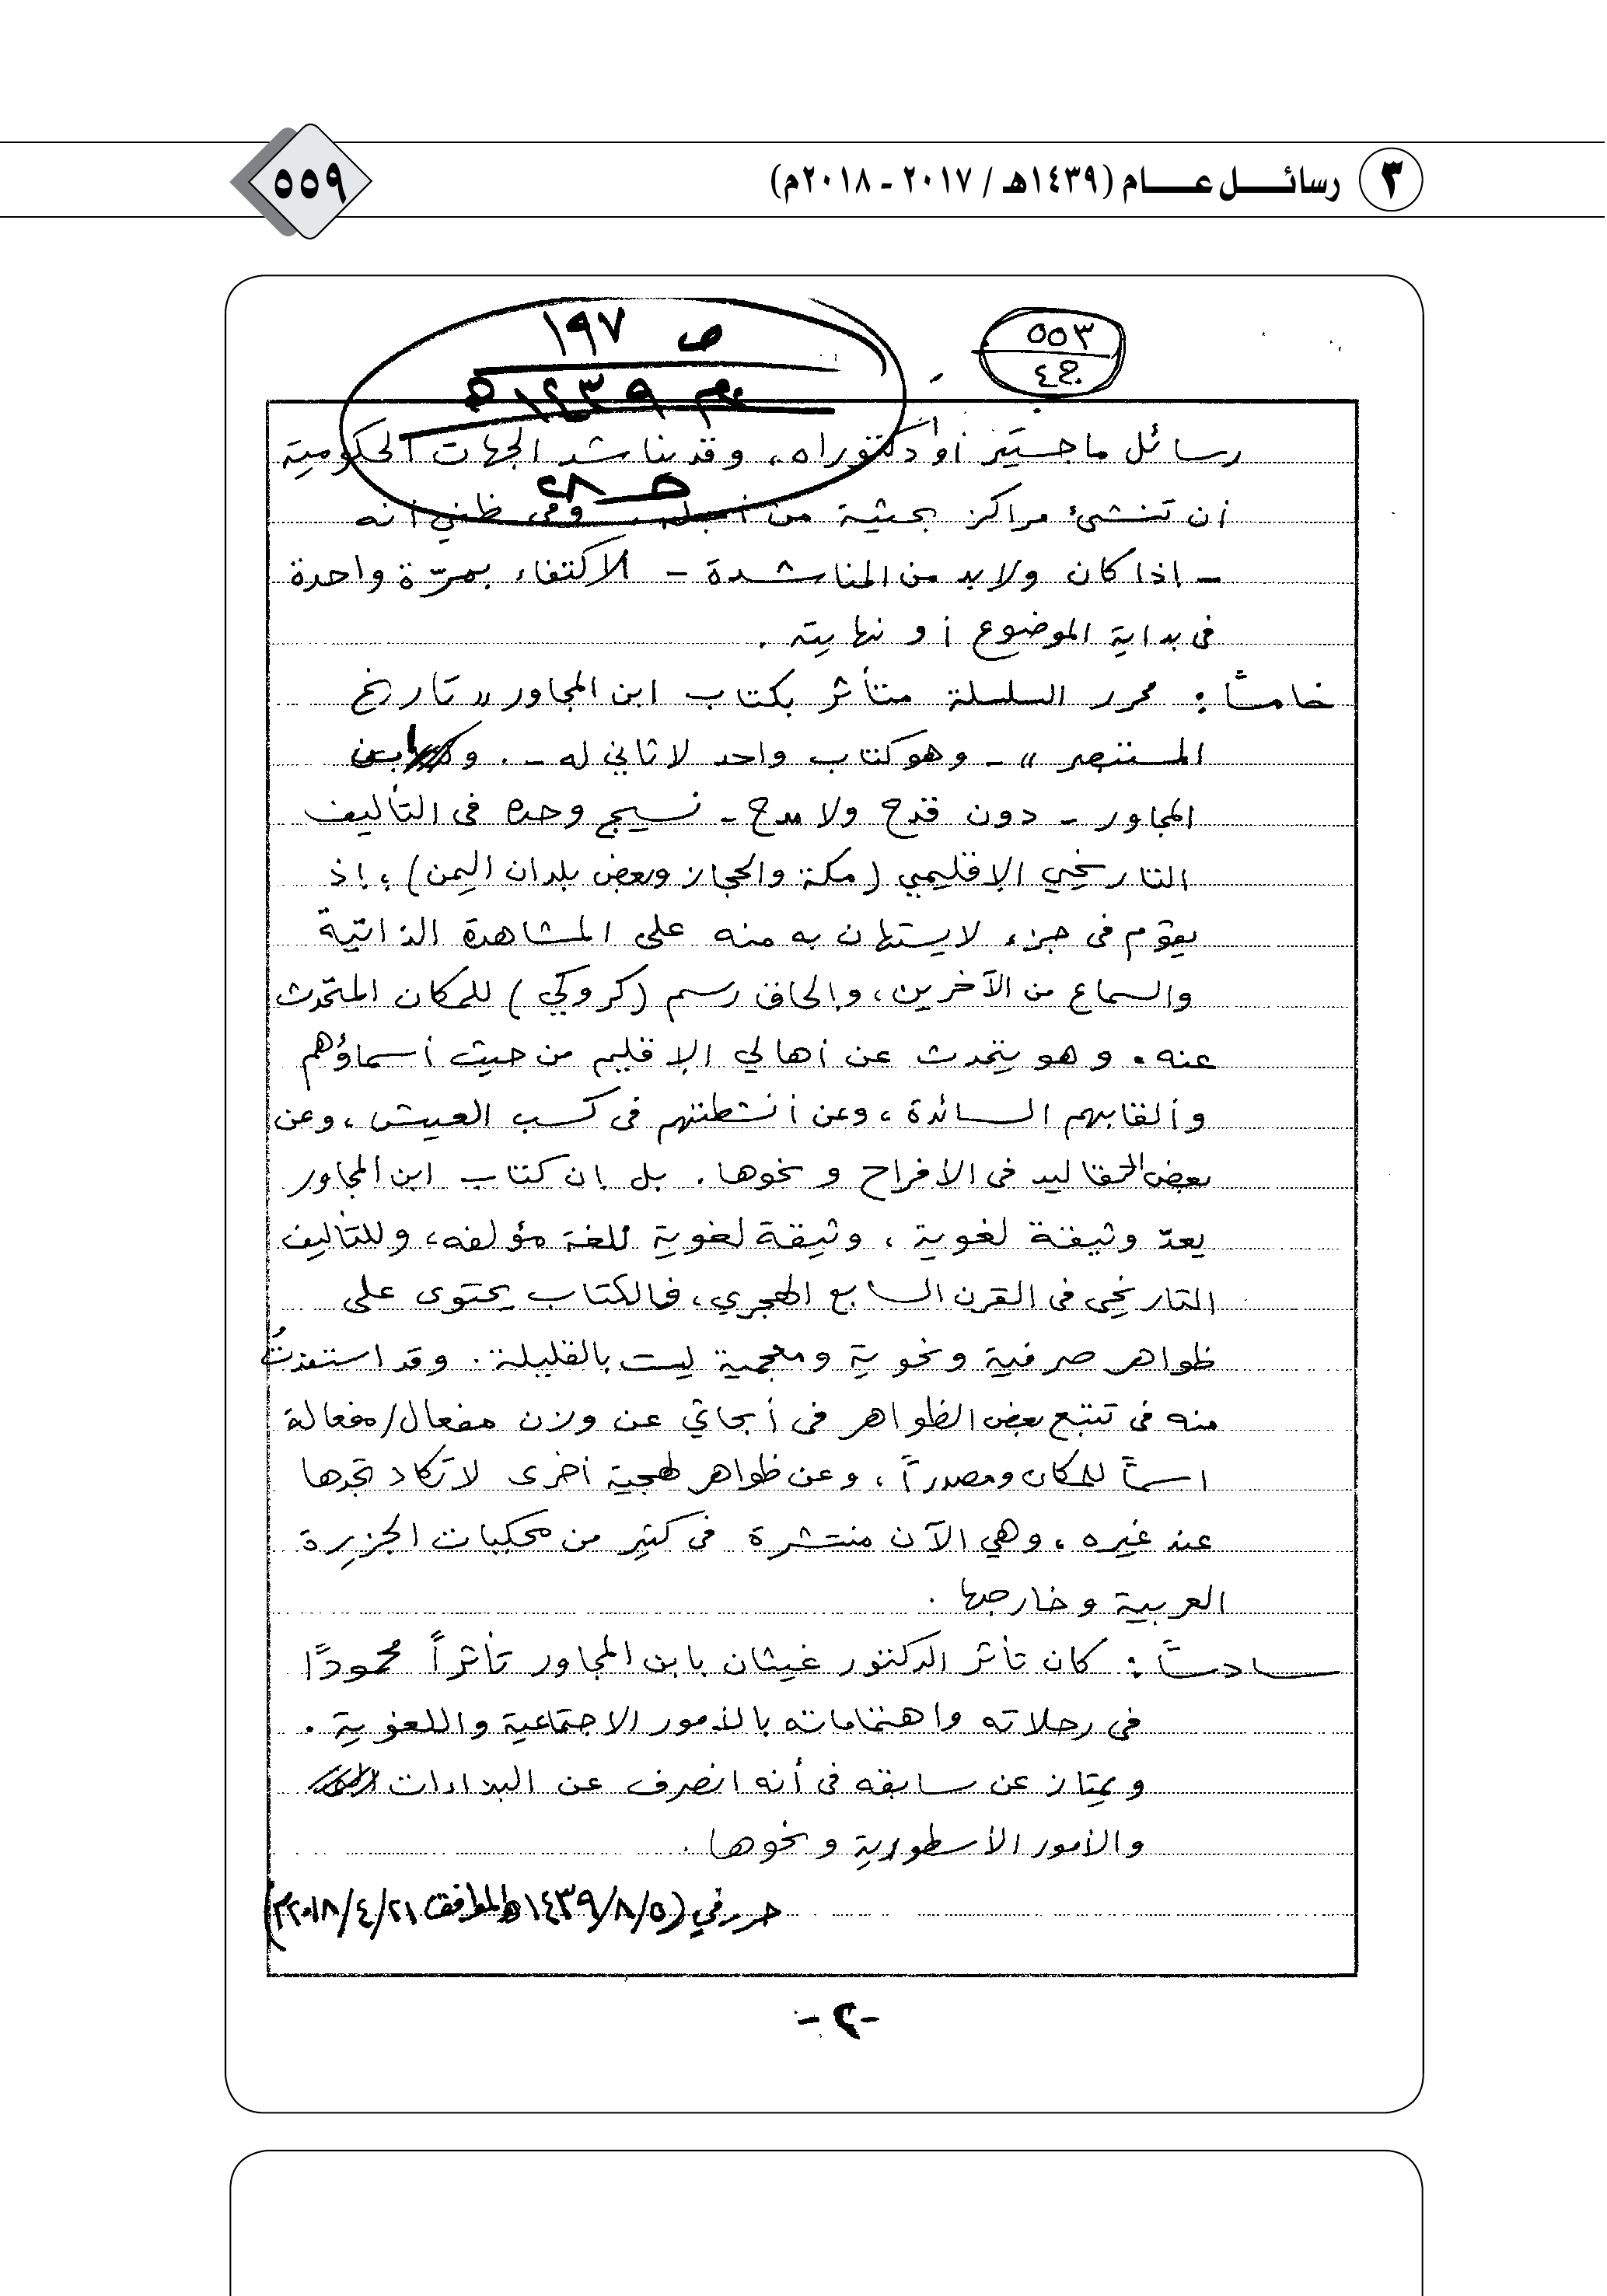 ٣ رسائل عام (١٤٣٩هـ / ٢٠١٧ - ٢٠١٨م)
٥٥٩
٥٥٣
ج٤
ص ١٩٧
عام ١٤٣٩هـ
رسائل ماجستير أو دكتوراه، وقد يناشد الجهات الحكومية
أن تنشئ مراكز بحثية من أجله. وفي ظني أنه
- إذا كان ولابد من المناشدة - الاكتفاء بمرّة واحدة
في بداية الموضوع أو نهايته .
خامساً : محرر السلسلة متأثر بكتاب ابن المجاور " تاريخ
المستبصر " - وهو كتاب واحد لا ثاني له - . و ابن
المجاور - دون قدح ولا مدح - نسيج وحده في التأليف
التاريخي الإقليمي (مكة والحجاز وبعض بلدان اليمن) ؛ إذ
يقوم في جزء لا يستهان به منه على المشاهدة الذاتية
والسماع من الآخرين، وإلحاق رسم (كروكي) للمكان المتحدث
عنه. وهو يتحدث عن أهالي الإقليم من حيث أسماؤهم
وألقابهم السائدة ، وعن أنشطتهم في كسب العيش ، وعن
بعض التقاليد في الأفراح ونحوها. بل إن كتاب ابن المجاور
يعدّ وثيقة لغوية ، وثيقة لغوية للغة مؤلفه، وللتأليف
التاريخي في القرن السابع الهجري، فالكتاب يحتوي على
ظواهر صرفية ونحوية ومعجمية ليست بالقليلة. وقد استفدتُ
منه في تتبع بعض الظواهر في أبحاثي عن وزن مفعال/مفعالة
اسماً للمكان ومصدراً ، وعن ظواهر لهجية أخرى لا تكاد تجدها
عند غيره ، وهي الآن منتشرة في كثير من محكيات الجزيرة
العربية وخارجها .
سادساً : كان تأثر الدكتور غيثان بابن المجاور تأثراً محمودًا
في رحلاته واهتماماته بالأمور الاجتماعية واللغوية .
ويمتاز عن سابقه في أنه انصرف عن البذاءات
والأمور الأسطورية ونحوها .
حرر في (١٤٣٩/٨/٥هـ الموافق ٢٠١٨/٤/٢١م)
-٢-